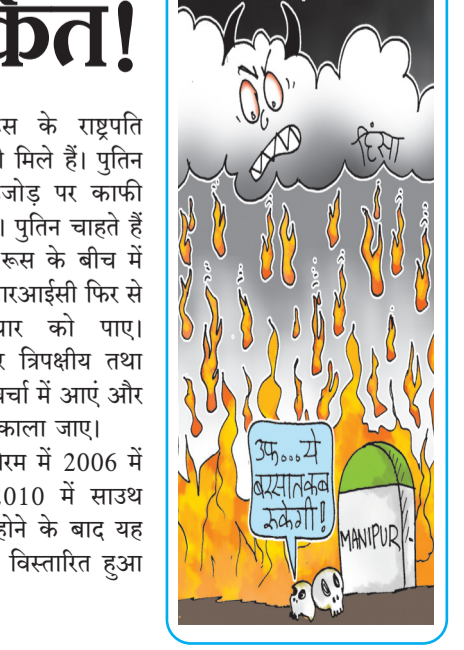 केत!
स के राष्ट्रपति
मिले हैं। पुतिन
जोड़ पर काफी
। पुतिन चाहते हैं
रूस के बीच में
आरआईसी फिर से
को पाए।
त्रिपक्षीय तथा
चर्चा में आएं और
काला जाए।
में 2006 में
2010 में साउथ
होने के बाद यह
विस्तारित हुआ
हिंसा
उफ॰॰॰ये
बरसात कब
रुकेगी!
MANIPUR